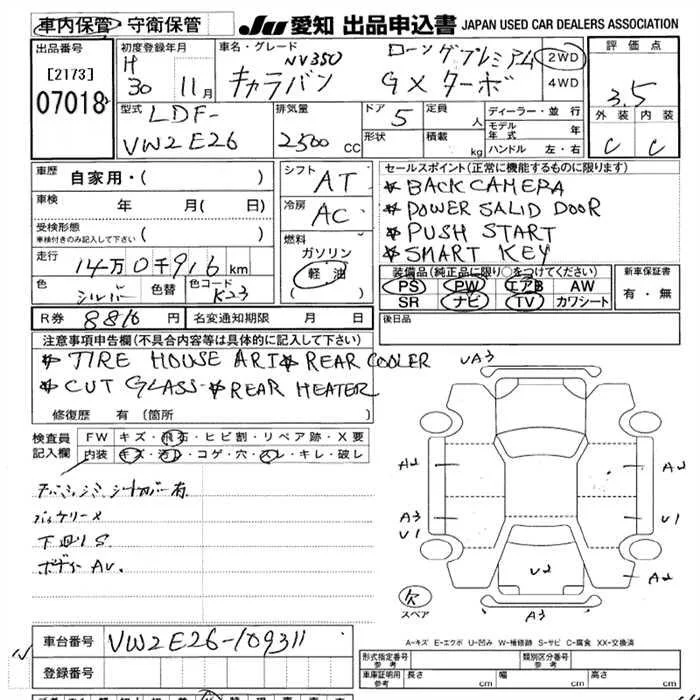 車内保管 ・ 守衛保管 JU 愛知 出品申込書 JAPAN USED CAR DEALERS ASSOCIATION
出品番号 [2173] 07018
初度登録年月 H 30 11月
車名・グレード NV350 キャラバン ロングプレミアム GXターボ
2WD 4WD
評価点 3.5
外装 内装 C C
型式 LDF- VW2E26
排気量 2500 CC
ドア 5 形状
定員 人 積載 kg
ディーラー・並行
モデル年式 年
ハンドル 左・右
車歴 自家用・( )
車検 年 月( 日)
受検形態 車検付きのみ記入して下さい ( )
走行 14万0千916km
色 シルバー 色替 色コード K23
シフト AT
冷房 AC
燃料 ガソリン 軽油 ( )
セールスポイント(正常に機能するものに限ります)
* BACK CAMERA
* POWER SALID DOOR
* PUSH START
* SMART KEY
装備品(純正品に限り○をつけてください)
PS PW エアB AW
SR ナビ TV カワシート
新車保証書 有・無
R券 8816円 名変通知期限 月 日
後日品
注意事項申告欄(不具合内容等は具体的に記入して下さい)
* TIRE HOUSE ARI * REAR COOLER
* CUT GLASS * REAR HEATER
修復歴 有 (箇所
検査員記入欄
FW キズ・飛石・ヒビ割・リペア跡・X要
内装 キズ・汚レ・コゲ・穴・スレ・キレ・破レ
バッテリーX
下廻りS
ボディーAU.
UA3
A2 A2
A3 U1
U1
U2
A2
A3
欠 スペア
A-キズ E-エクボ U-凹み W-補修跡 S-サビ C-腐食 XX-交換済
車台番号 VW2E26-109311
登録番号
形式指定番号 参考 類別区分番号 参考
車庫証明用 参考 長さ cm 幅 cm 高さ cm